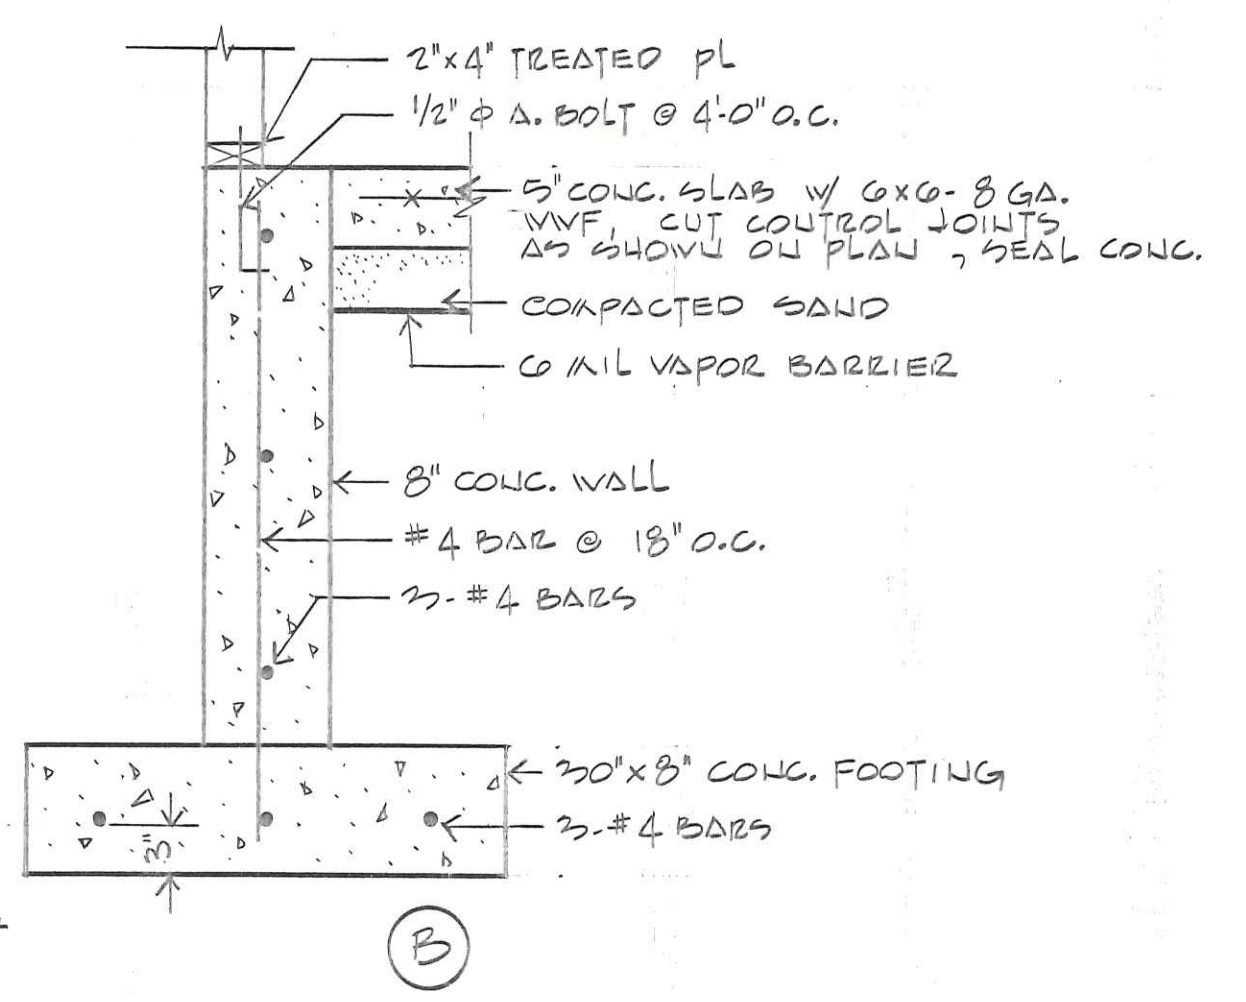 2"x4" TREATED PL
1/2" ϕ A. BOLT @ 4'-0" O.C.
5" CONC. SLAB W/ 6x6-8 GA.
WWF, CUT CONTROL JOINTS
AS SHOWN ON PLAN, SEAL CONC.
COMPACTED SAND
6 MIL VAPOR BARRIER
8" CONC. WALL
#4 BAR @ 18" O.C.
3-#4 BARS
30"x8" CONC. FOOTING
3-#4 BARS
3"
B